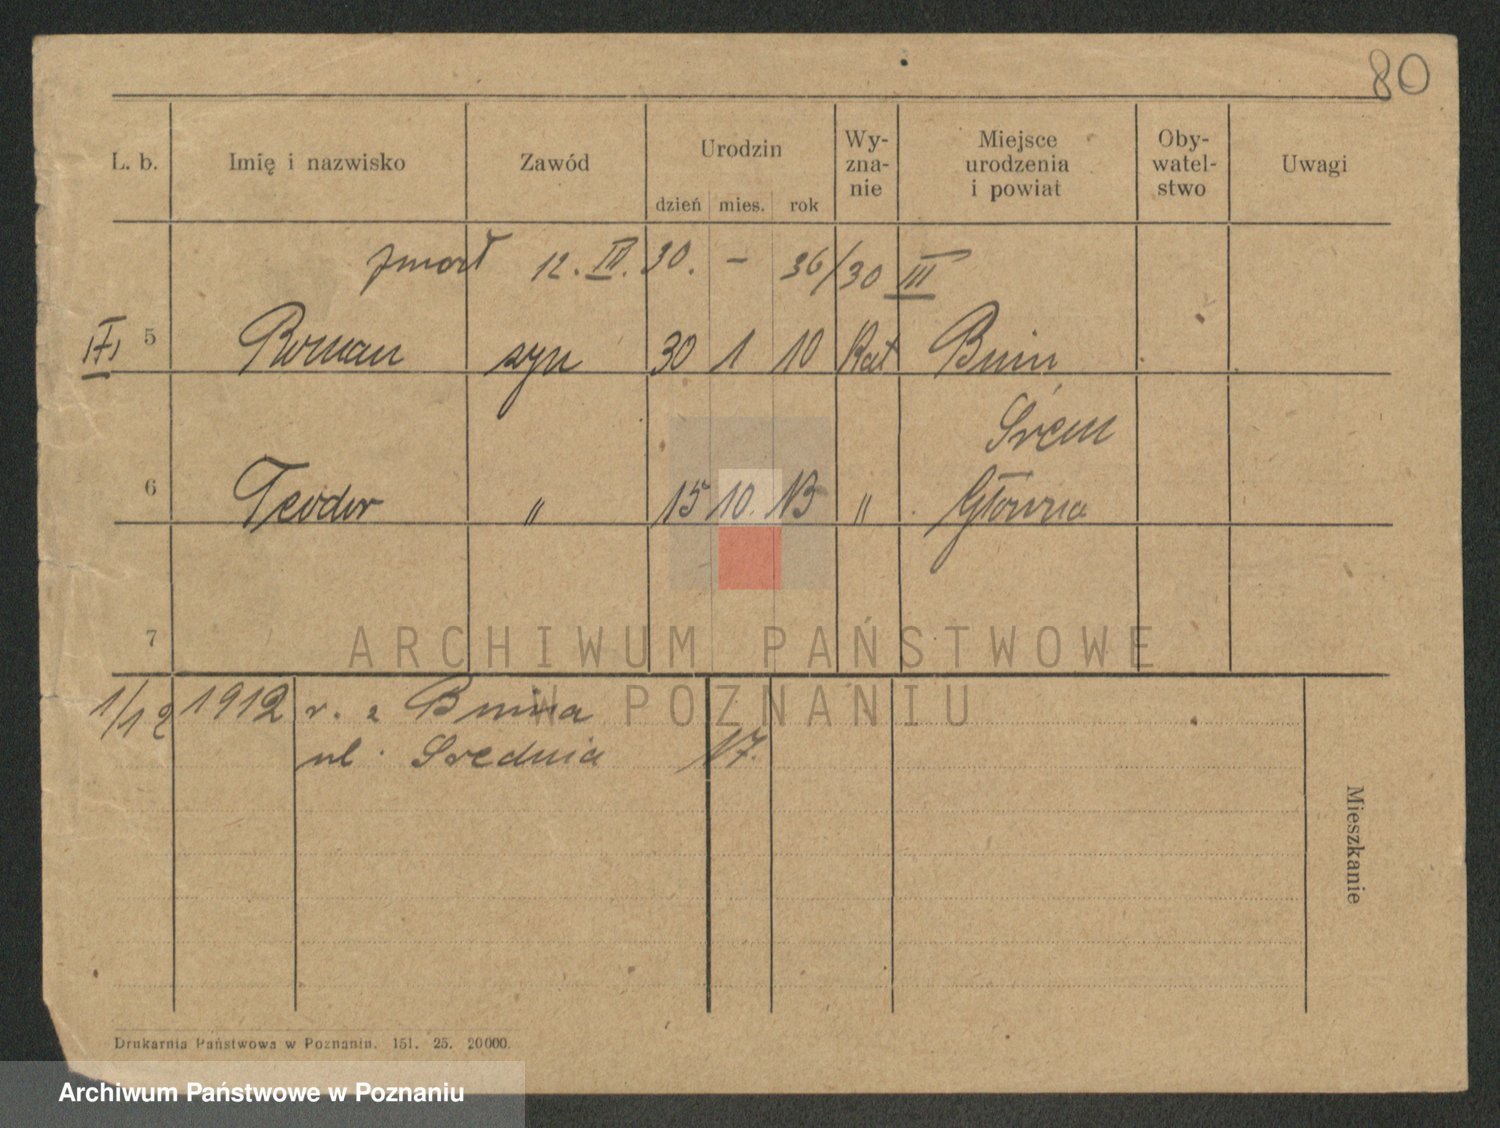 80
L. b. Imię i nazwisko Zawód Urodzin dzień mies. rok Wy-zna-nie Miejsce urodzenia i powiat Oby-watel-stwo Uwagi
zmarł 12. III. 30. - 36/30 III
5 Roman syn 30 1 10 Kat Bnin
Śrem
6 Teodor " 15 10. 13 " Główna
7
ARCHIWUM PAŃSTWOWE
W POZNANIU
1/12 1912 r. z Bnina
ul. Średnia 17.
Mieszkanie
Drukarnia Państwowa w Poznaniu. 151. 25. 20000.
Archiwum Państwowe w Poznaniu